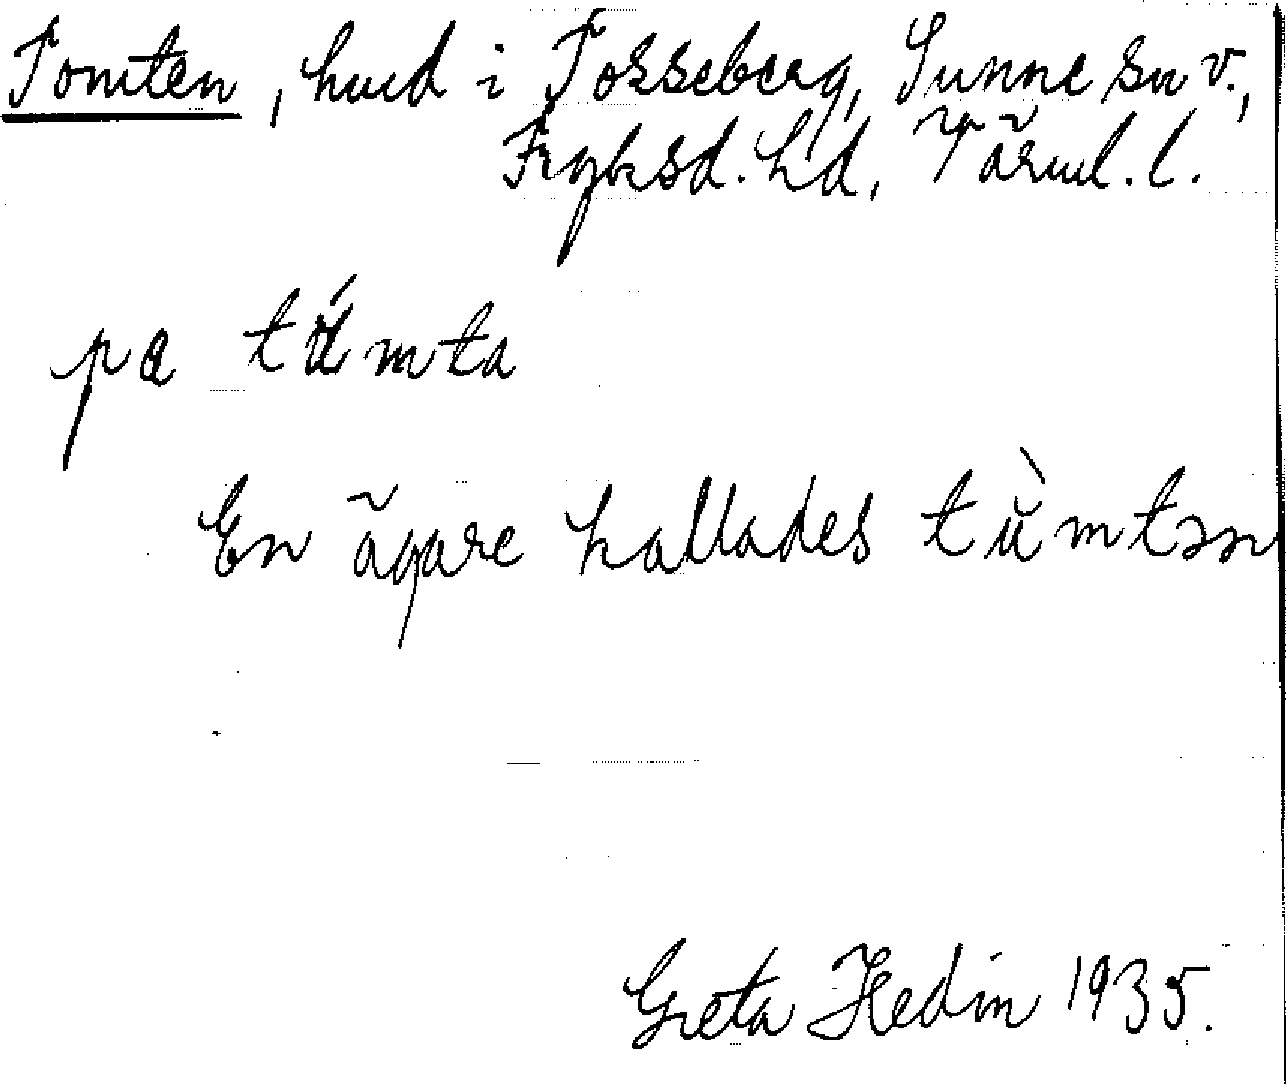 Tomten, hmd i Tosseberg, Sunne sn v.,
Fryksd. hd, Värml. l.
pa tú̈mta
En ägare kallades tù̈mtən
Greta Hedin 1935.